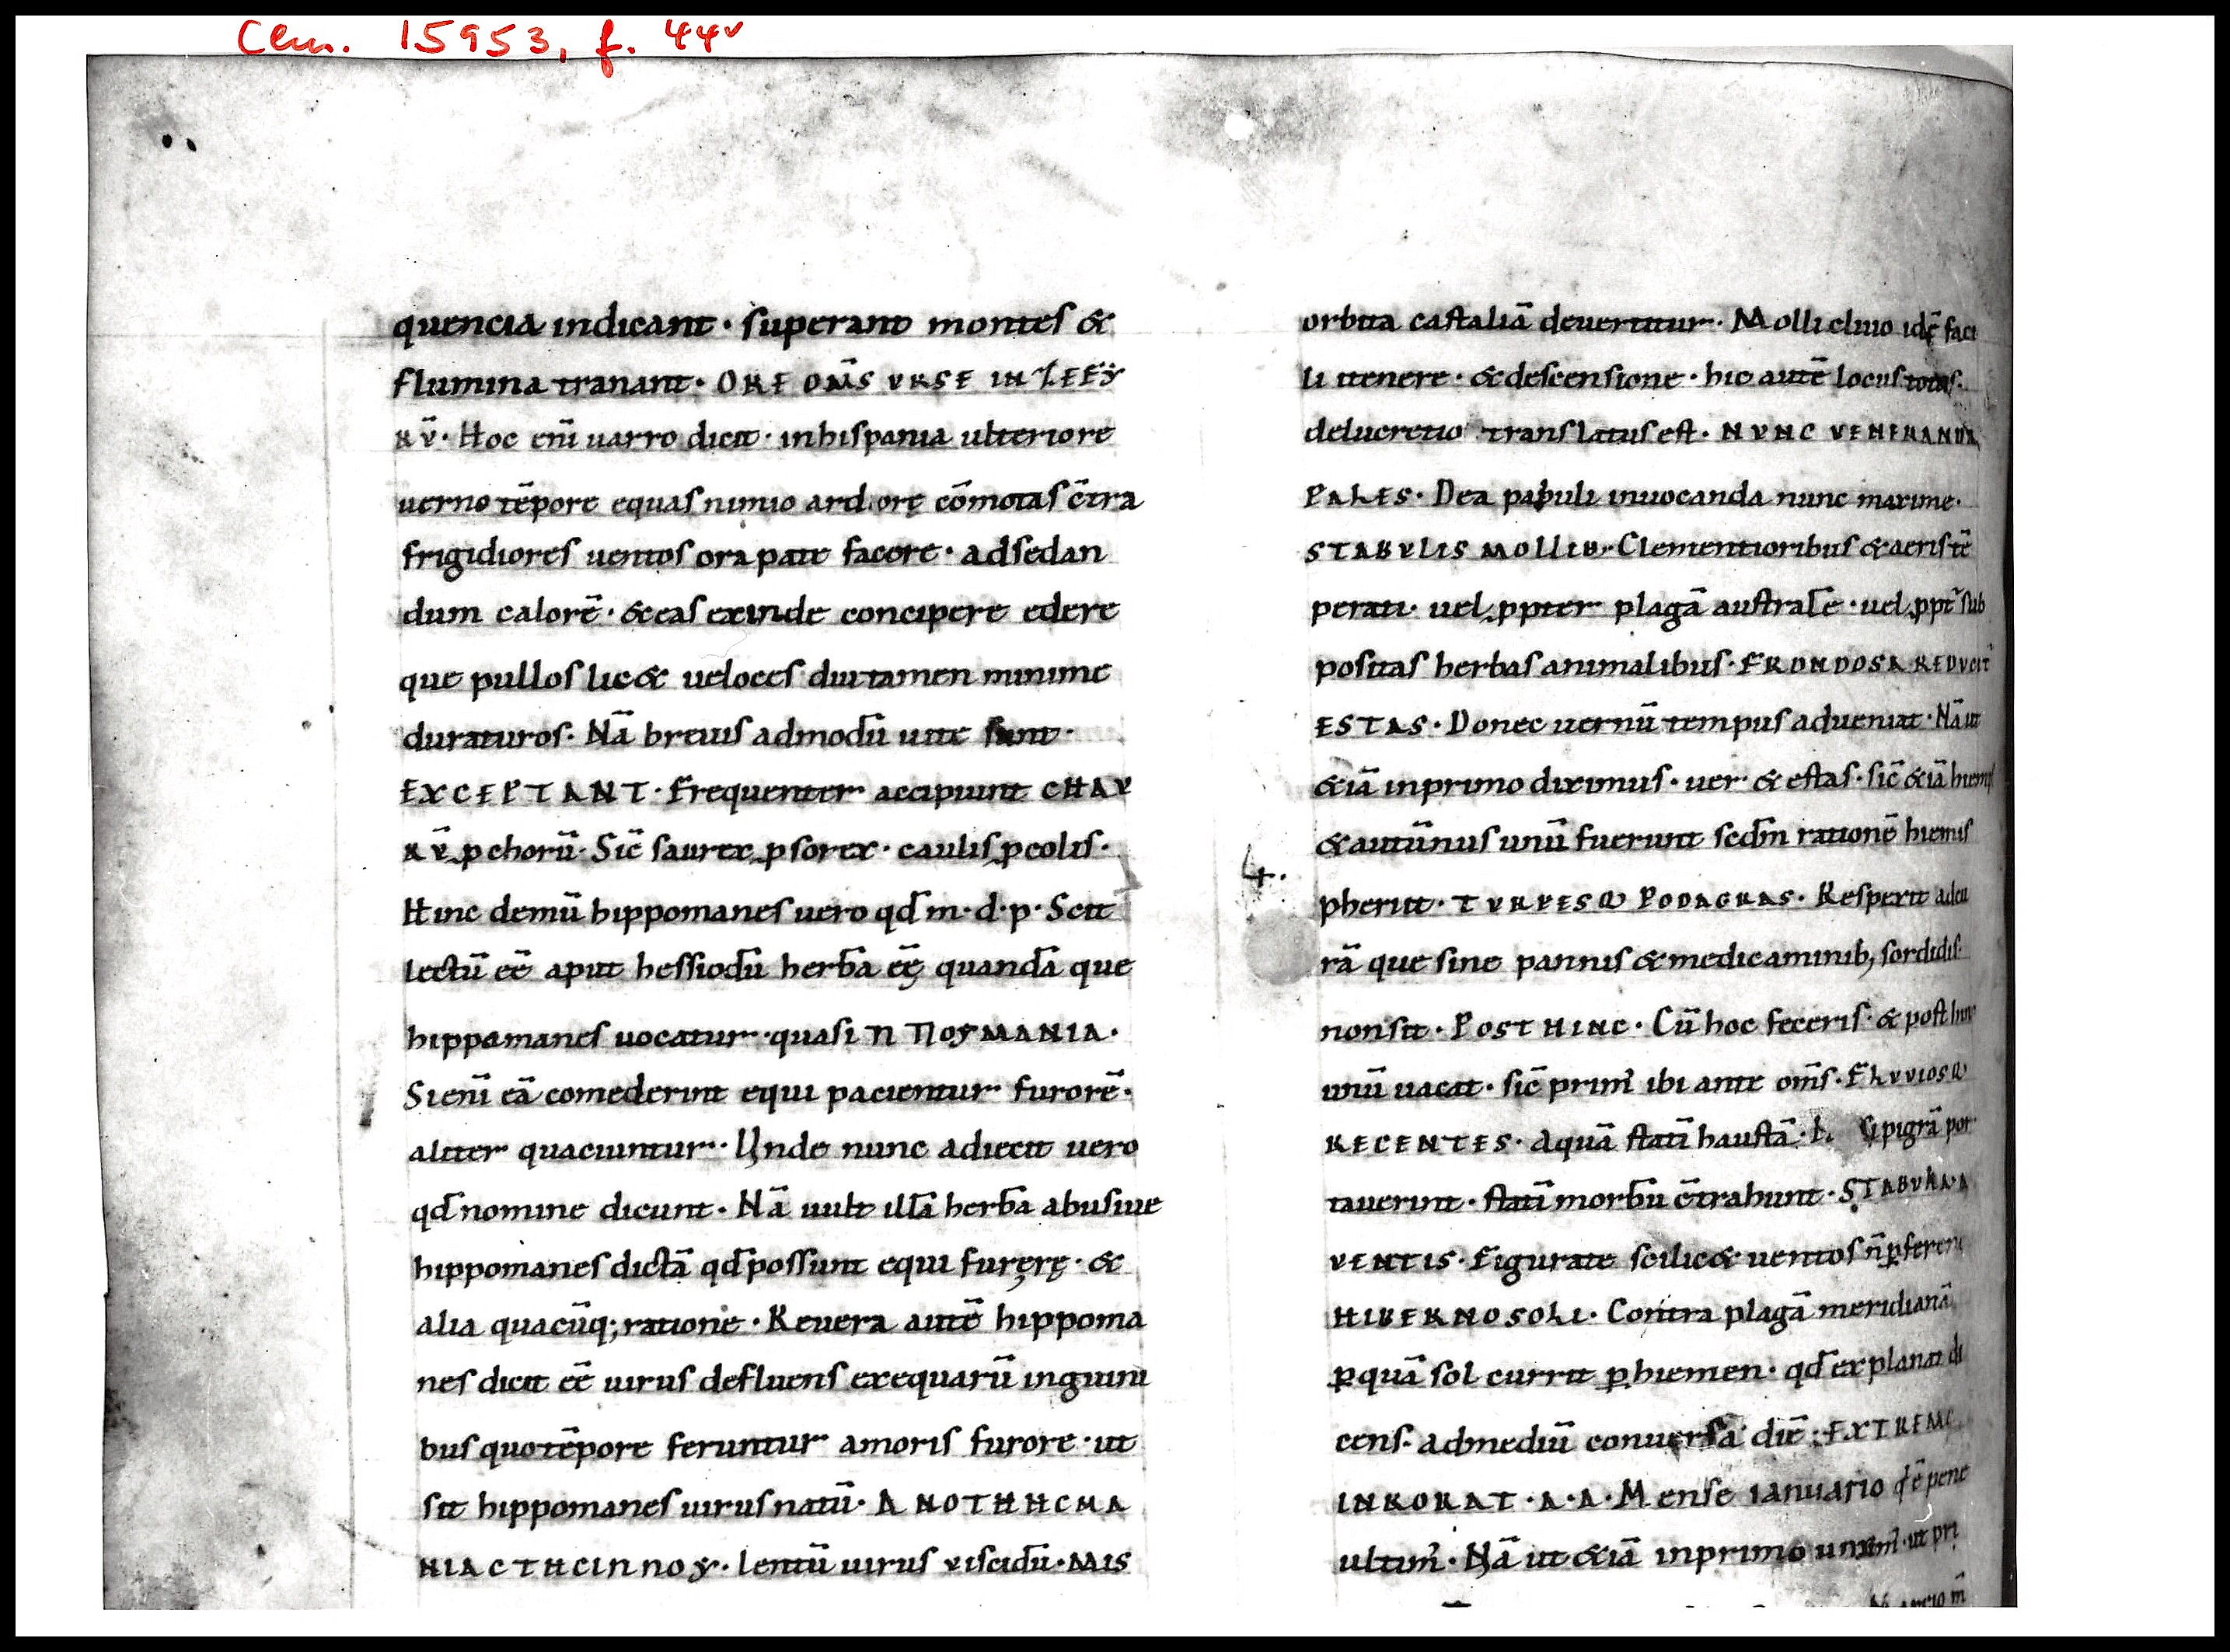 Clm. 15953, f. 44v
quencia indicant · superant montes &
flumina tranant · ORE OM̄S VRSE IN ZEFY
RV̄ · Hoc eni̅ uarro dicit · inhispania ulteriore
uerno te̅pore equas nimio ardore co̅motas c̅tra
frigidiores uentos ora pate facere · adsedan
dum calore̅ · & eas exinde concipere edere
que pullos lic& ueloces diu tamen minime
duraturos · Na̅ breuis admodu̅ uite sunt ·
EXCEPTANT · Frequenter accipiunt CHAV
RV̄ ꝓ choru̅ · Sic̅ saurex ꝓ sorex · caulis ꝓ colis ·
Hinc demu̅ hippomanes uero qd̅ m · d · p · Scit
lectu̅ ee̅ aput hessiodu̅ herba̅ ee̅ quanda̅ que
hippomanes uocatur · quasi Π ΠΟΥΜΑΝΙΑ ·
Sieni̅ ea̅ comederint equi pacientur furore̅ ·
aliter quaciuntur · Unde nunc adiecit uero
qd̅ nomine dicunt · Na̅ uult illa̅ herba̅ abusiue
hippomanes dicta̅ qd̅ possunt equi furęrę · &
alia quacu̅q; ratione · Reuera aute̅ hippoma
nes dicit ee̅ uirus defluens exequaru̅ inguini
bus quo te̅pore feruntur amoris furore · ut
sit hippomanes uirus natu̅ · ΑΝΟΤΗΗCΜΑ
ΝΙΑCΤΗCΙΠΠΟΥ · lentu̅ uirus uiscidu̅ · MIS
orbita castalia̅ deuertitur · Molli cliuo ide̅ faci
li itenere · & descensione · hic aute̅ locus totus
delucretio translatus est · NVNC VENERANDA
PALES · Dea pabuli inuocanda nunc maxime ·
STABVLIS MOLLIB · Clementioribus & aeris te̅
perati · uel ꝓpter plaga̅ australe̅ · uel ꝓpt̅ sub
positas herbas animalibus · FRONDOSA REDVCIT̅
ESTAS · Donec uernu̅ tempus adueniat · Na̅ ut
&ia̅ inprimo diximus · uer · & estas · sic̅ &ia̅ hiems
& autu̅nus unu̅ fuerunt scdm̅ ratione̅ hiemis
4.
pheritt · TVRPESQ PODAGRAS · Resperit adcu
ra̅ que sine pannis & medicaminib; sordidis
nonsit · POST HINC · Cu̅ hoc feceris · & post hinc
unu̅ uacat · sic̅ prim̅ ibi ante om̅s · FLVVIOSQ
RECENTES · Aqua̅ stati̅ hausta̅ · pigra̅ por
tauerint · stati̅ morbu̅ c̅trahunt · STABVLA · A
VENTIS · Figurate scilic& uentos n̅ ꝑferen
HIBERNO SOLI · Contra plaga̅ meridiana̅
ꝑqua̅ sol currit ꝑhiemen · qd̅ explanat di
cens · admediu̅ conuersa die̅ · EXTREMO
INRORAT · A · A · Mense ianuario qd̅ e̅ pene
ultim̅ · Na̅ ut &ia̅ inprimo · ut pri